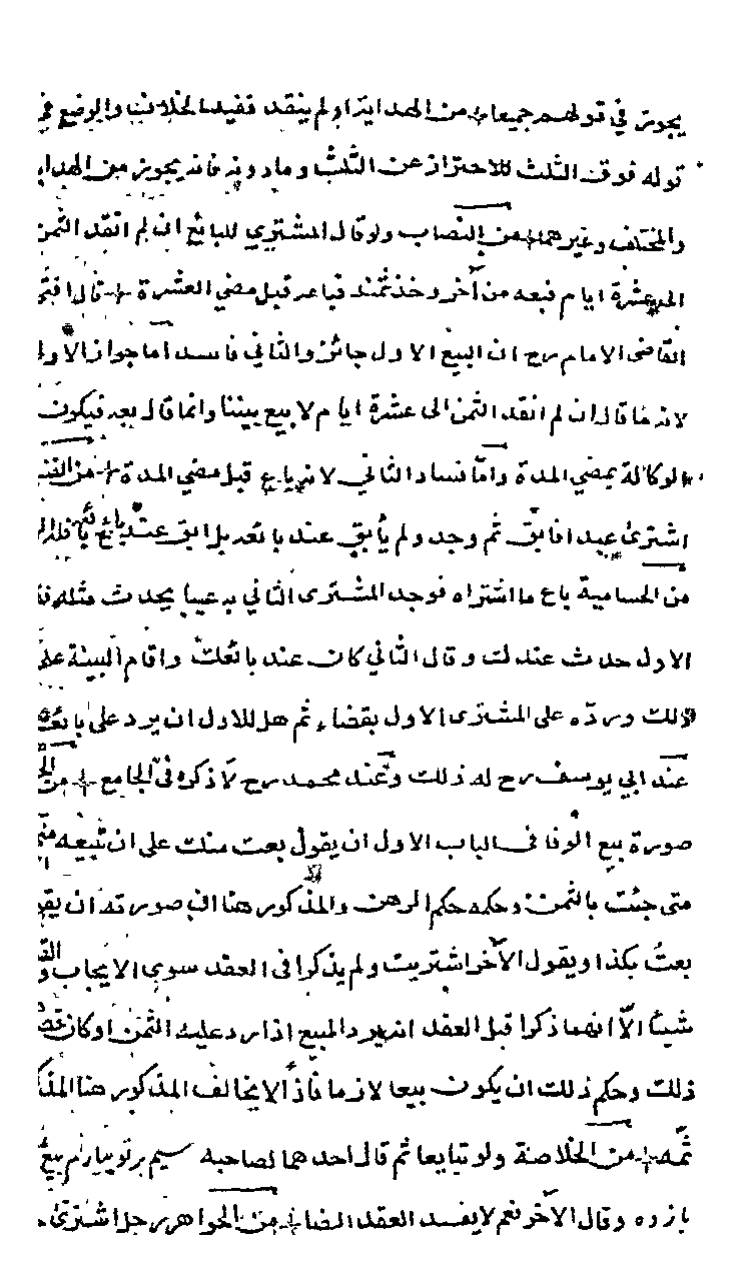 يجوز في قولهم جميعا من الهداية ولم ينقد ففيه الخلاف والوضع في
قوله فوق الثلث للاحتراز عن الثلث وما دونه فانه يجوز من الهداية
والمختلف وغيرهما من النصاب ولو قال المشتري للبائع ان لم انقد الثمن
الى عشرة ايام فبعه من آخر وخذ ثمنه فباعه قبل مضي العشرة قال افتى
القاضي الامام رح ان البيع الاول جائز والثاني فاسد اما جواز الاول
لانه ما قال ان لم انقد الثمن الى عشرة ايام لا بيع بيننا وانما قال بعه فيكون
الوكالة بمضي المدة واما فساد الثاني لانه باع قبل مضي المدة من القنية
اشترى عبدا فابق ثم وجد ولم يأبق عند بائعه بل ابق عند بائع بائعه
من الحسامية باع ما اشتراه فوجد المشترى الثاني به عيبا يحدث مثله فقال
الاول حدث عندك وقال الثاني كان عند بائعك واقام البينة على
ذلك ورده على المشترى الاول بقضاء ثم هل للاول ان يرد على بائعه
عند ابي يوسف رح له ذلك وعند محمد رح لا ذكره في الجامع من
صورة بيع الوفا في الباب الاول ان يقول بعت منك على ان تبيعه مني
متى جئت بالثمن وحكمه حكم الرهن والمذكور هنا ان صورته ان يقول
بعت بكذا ويقول الآخر اشتريت ولم يذكرا في العقد سوى الايجاب والقبول
شيئا الا انهما ذكرا قبل العقد انه يرد المبيع اذا رد عليه الثمن او كان قصد
ذلك وحكم ذلك ان يكون بيعا لازما نافذا لا يخالف المذكور هنا المذكور
ثمه من الخلاصة ولو تبايعا ثم قال احدهما لصاحبه سيم بر تو بيارم بيع
باز ده وقال الآخر نعم لا يفسد العقد من الجواهر رجل اشترى